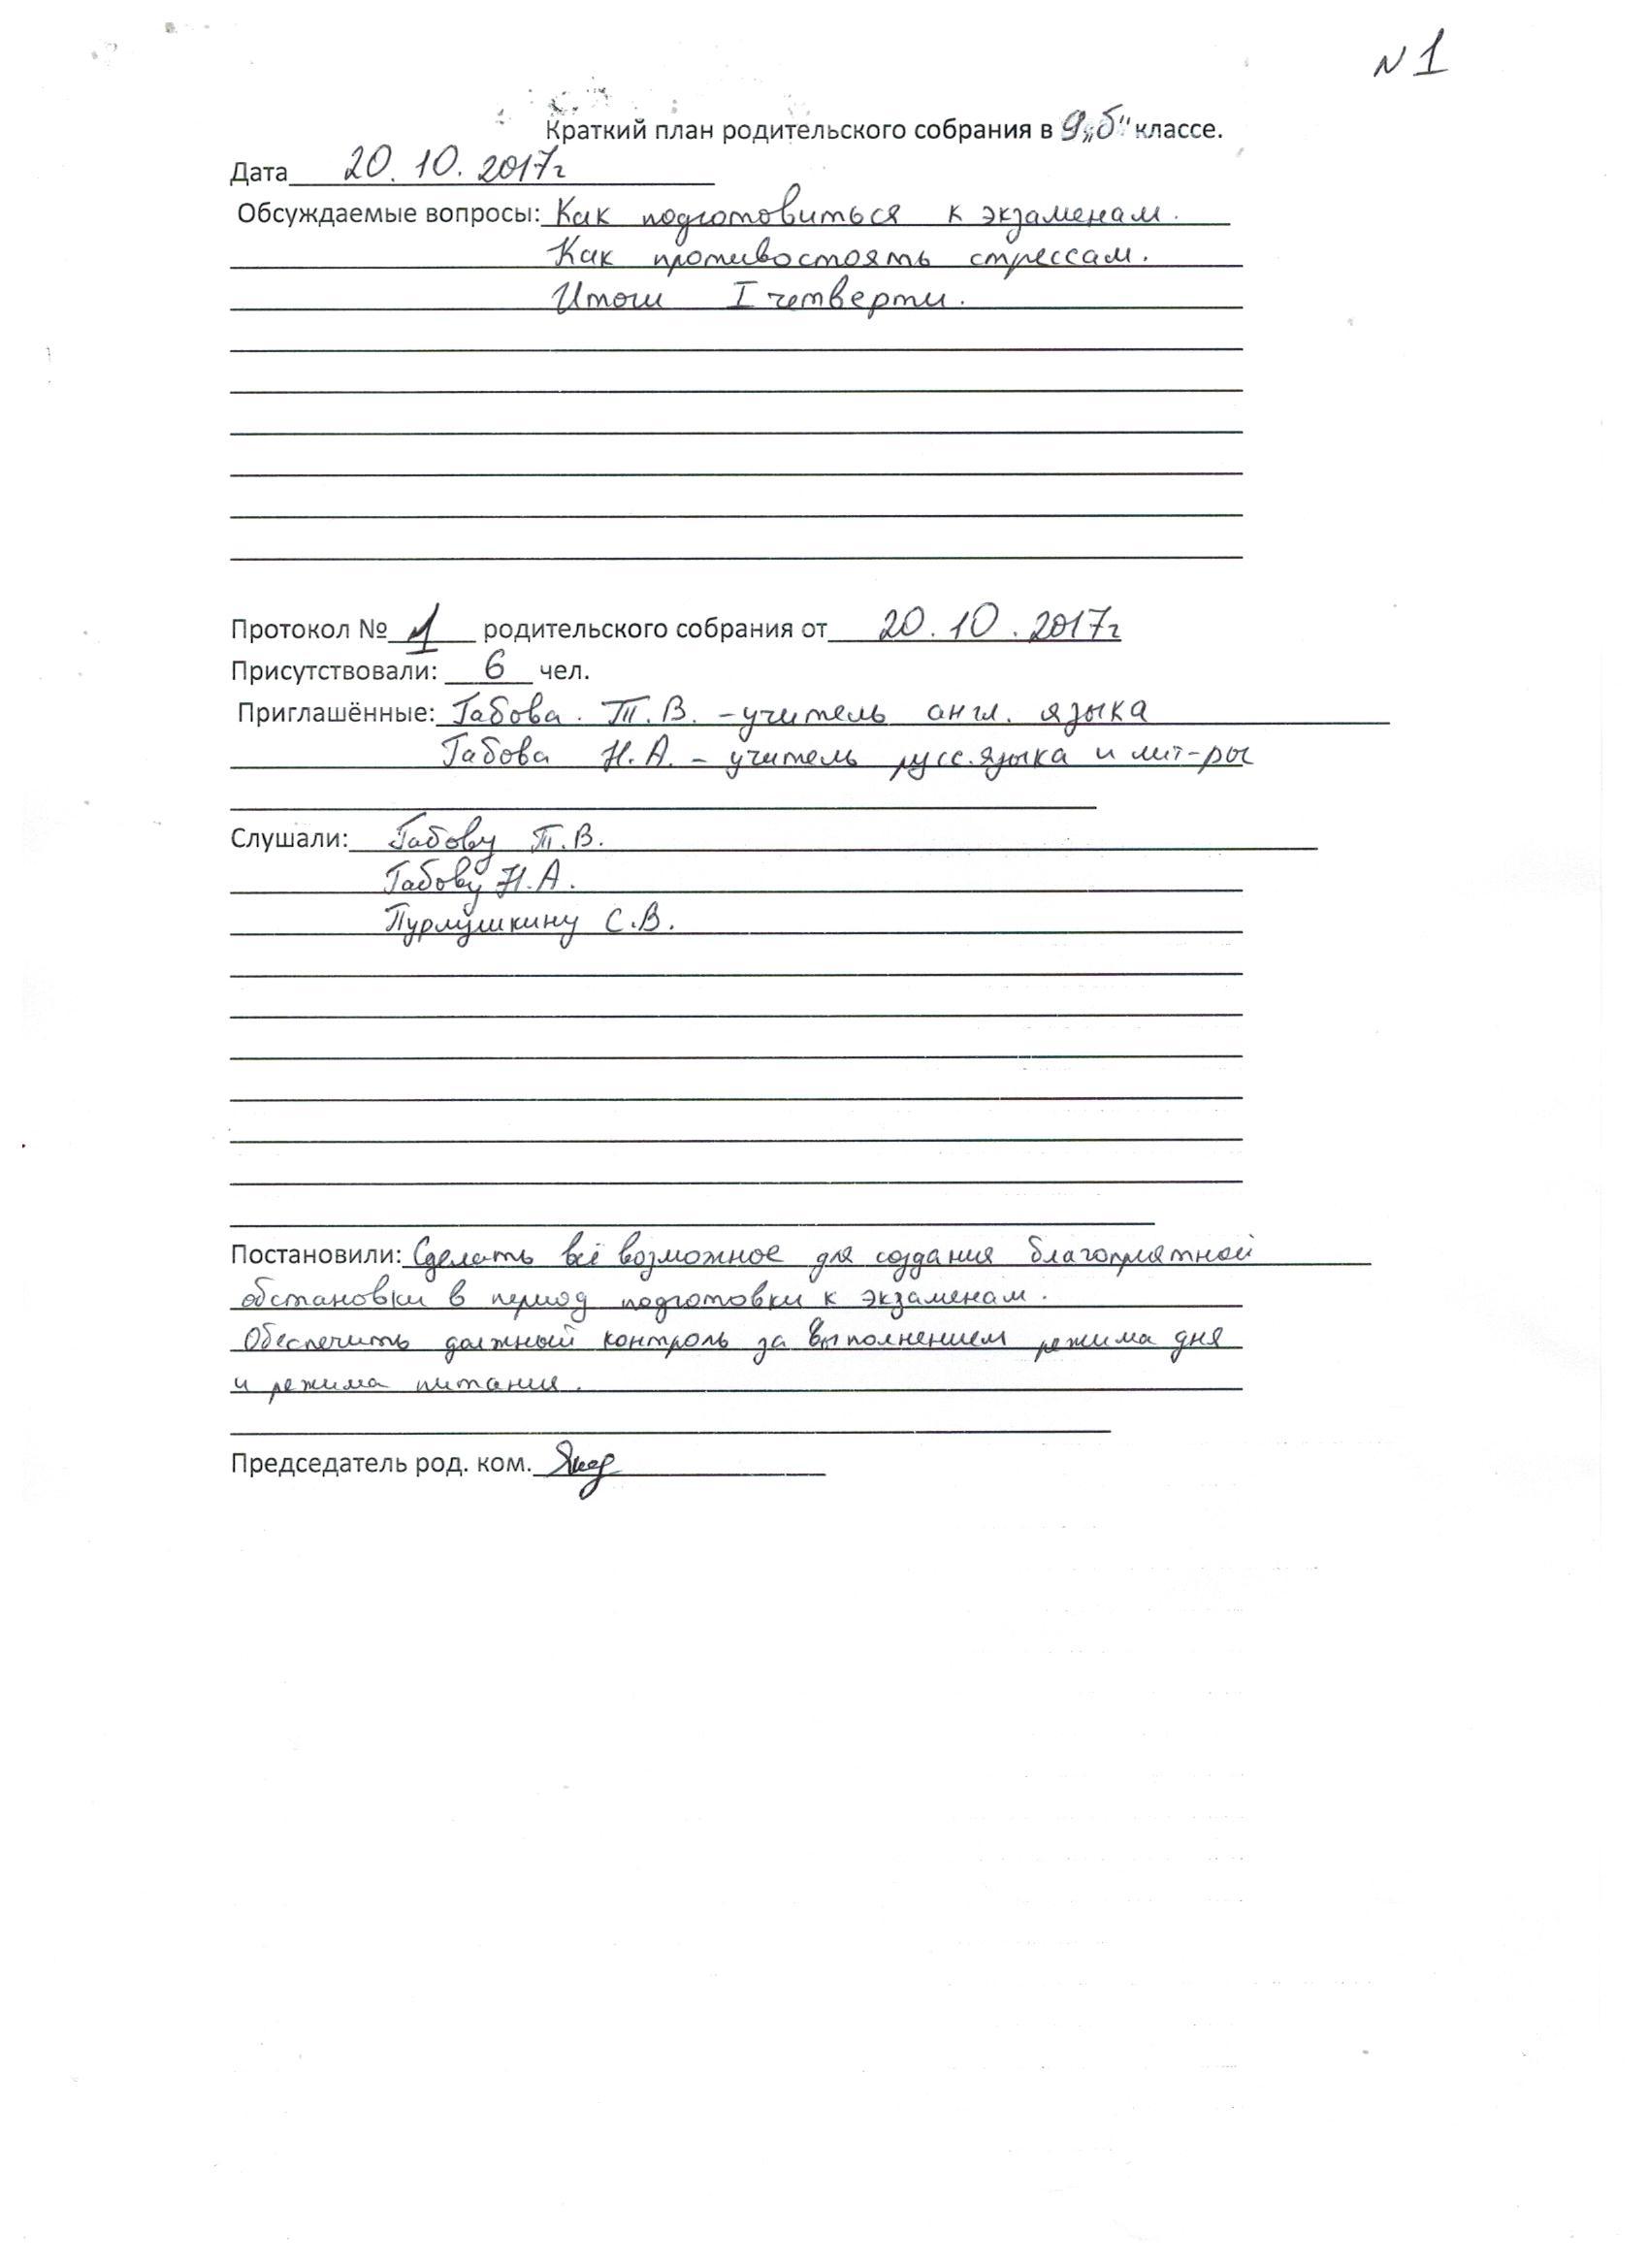 N 1
Краткий план родительского собрания в 9 „б" классе.
Дата 20.10.2017г
Обсуждаемые вопросы: Как подготовиться к экзаменам.
Как противостоять стрессам.
Итоги I четверти.
Протокол № 1 родительского собрания от 20.10.2017г
Присутствовали: 6 чел.
Приглашённые: Габова Т.В. – учитель англ. языка
Габова Н.А. – учитель русс. языка и лит-ры
Слушали: Габову Т.В.
Габову Н.А.
Пурлушкину С.В.
Постановили: Сделать всё возможное для создания благоприятной
обстановки в период подготовки к экзаменам.
Обеспечить должный контроль за выполнением режима дня
и режима питания.
Председатель род. ком.